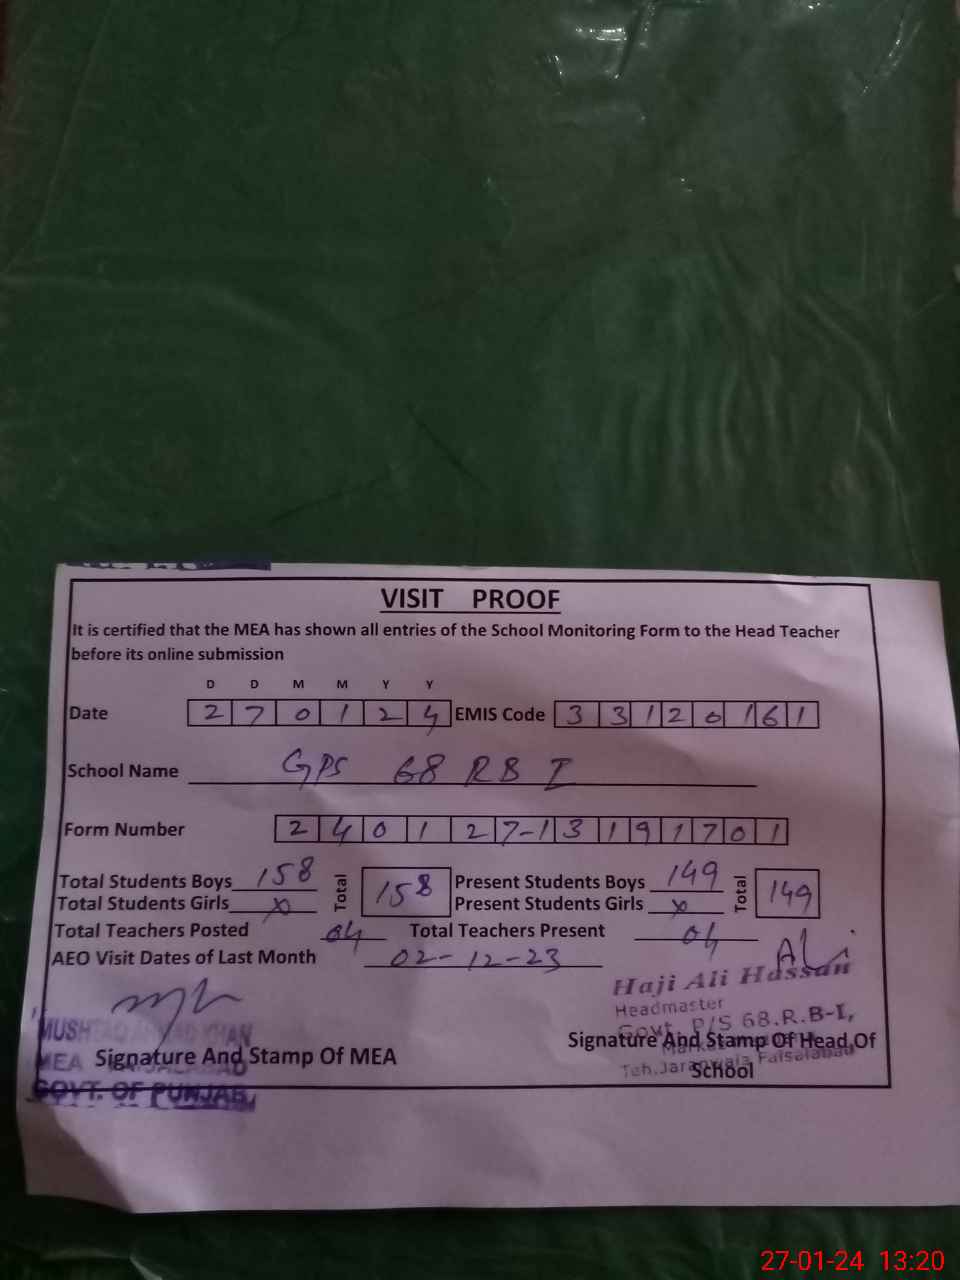 VISIT PROOF
It is certified that the MEA has shown all entries of the School Monitoring Form to the Head Teacher
before its online submission
D D M M Y Y
Date 2 7 0 1 2 4 EMIS Code 3 3 1 2 0 1 6 1
School Name GPS 68 RB I
Form Number 2 4 0 1 2 7-1 3 1 9 1 7 0 1
Total Students Boys 158 Total 158 Present Students Boys 149 Total 149
Total Students Girls x Present Students Girls x
Total Teachers Posted 04 Total Teachers Present 04
AEO Visit Dates of Last Month 02-12-23
Haji Ali Hassan
Headmaster
Govt. P/S 68.R.B-I,
MUSHTAQ AHMAD KHAN
Signature And Stamp Of Head Of
School
MEA
Signature And Stamp Of MEA
Teh. Jaranwala Faisalabad
GOVT. OF PUNJAB
27-01-24 13:20